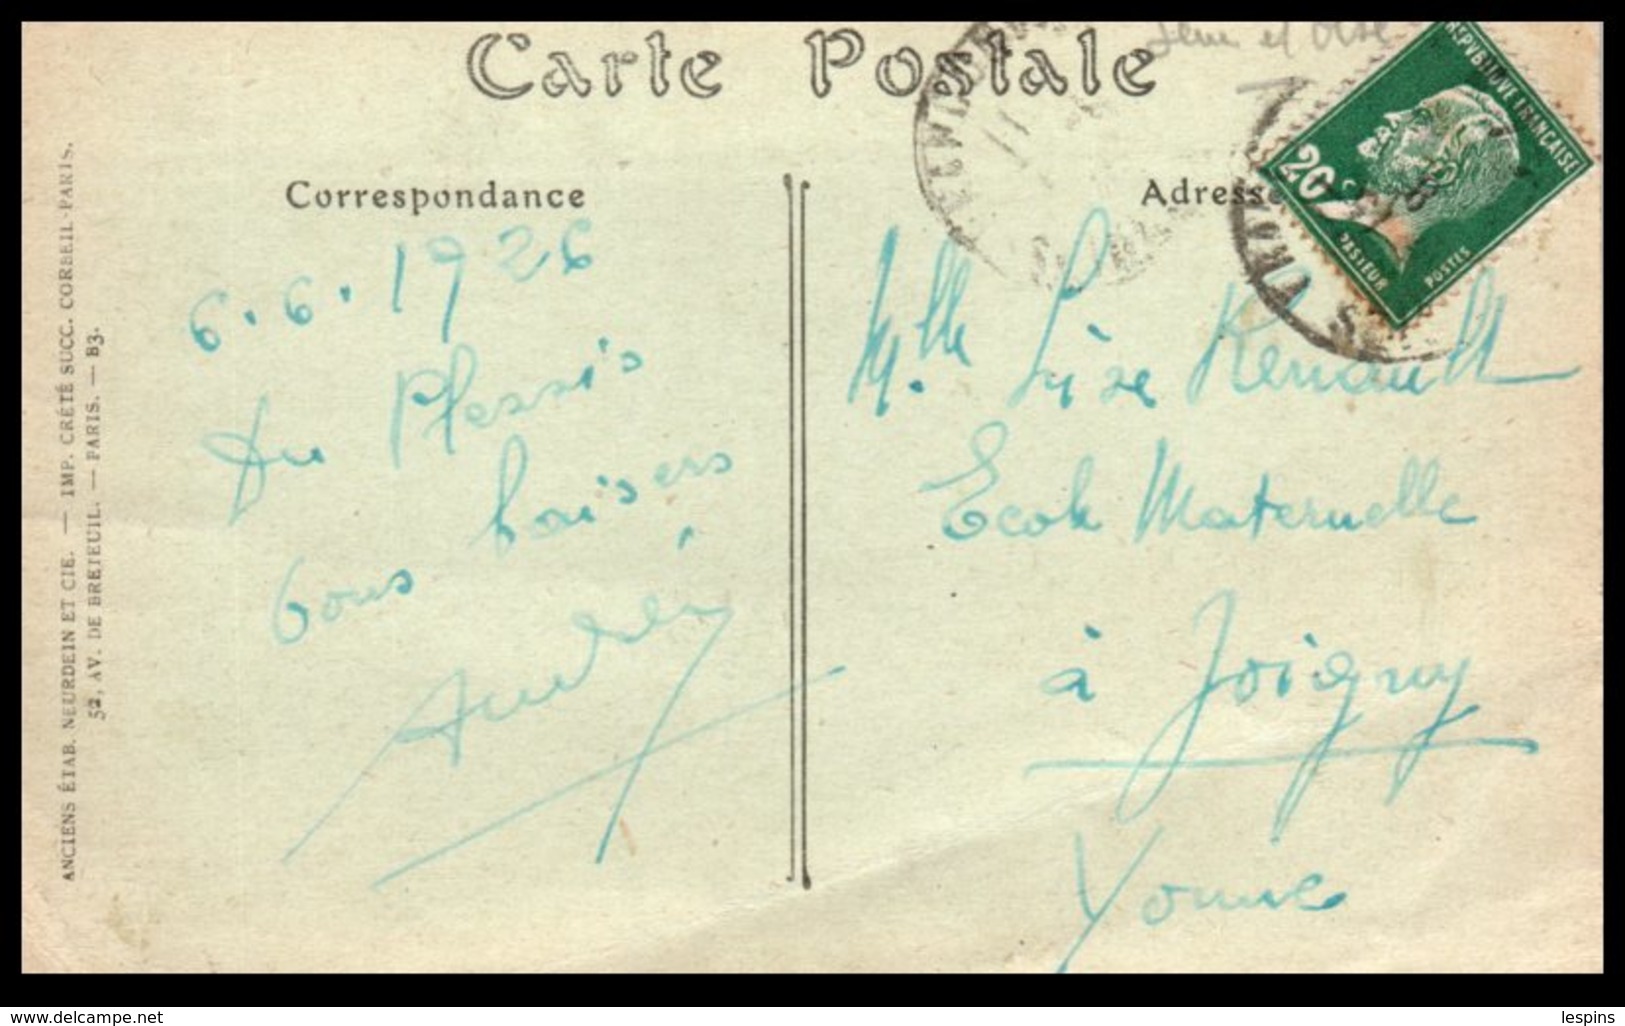 Carte Postale
Seine et Oise
Correspondance
Adresse
REPVBLIQVE FRANÇAISE
20 c
PASTEUR
POSTES
6.6.1926
Du Plessis
bons baisers
André
Mlle Lise Renault
Ecole Maternelle
à Joigny
Yonne
ANCIENS ÉTAB. NEURDEIN ET CIE. — IMP. CRÉTÉ SUCC. CORBEIL-PARIS.
52, AV. DE BRETEUIL. — PARIS. — B3.
www.delcampe.net
lespins